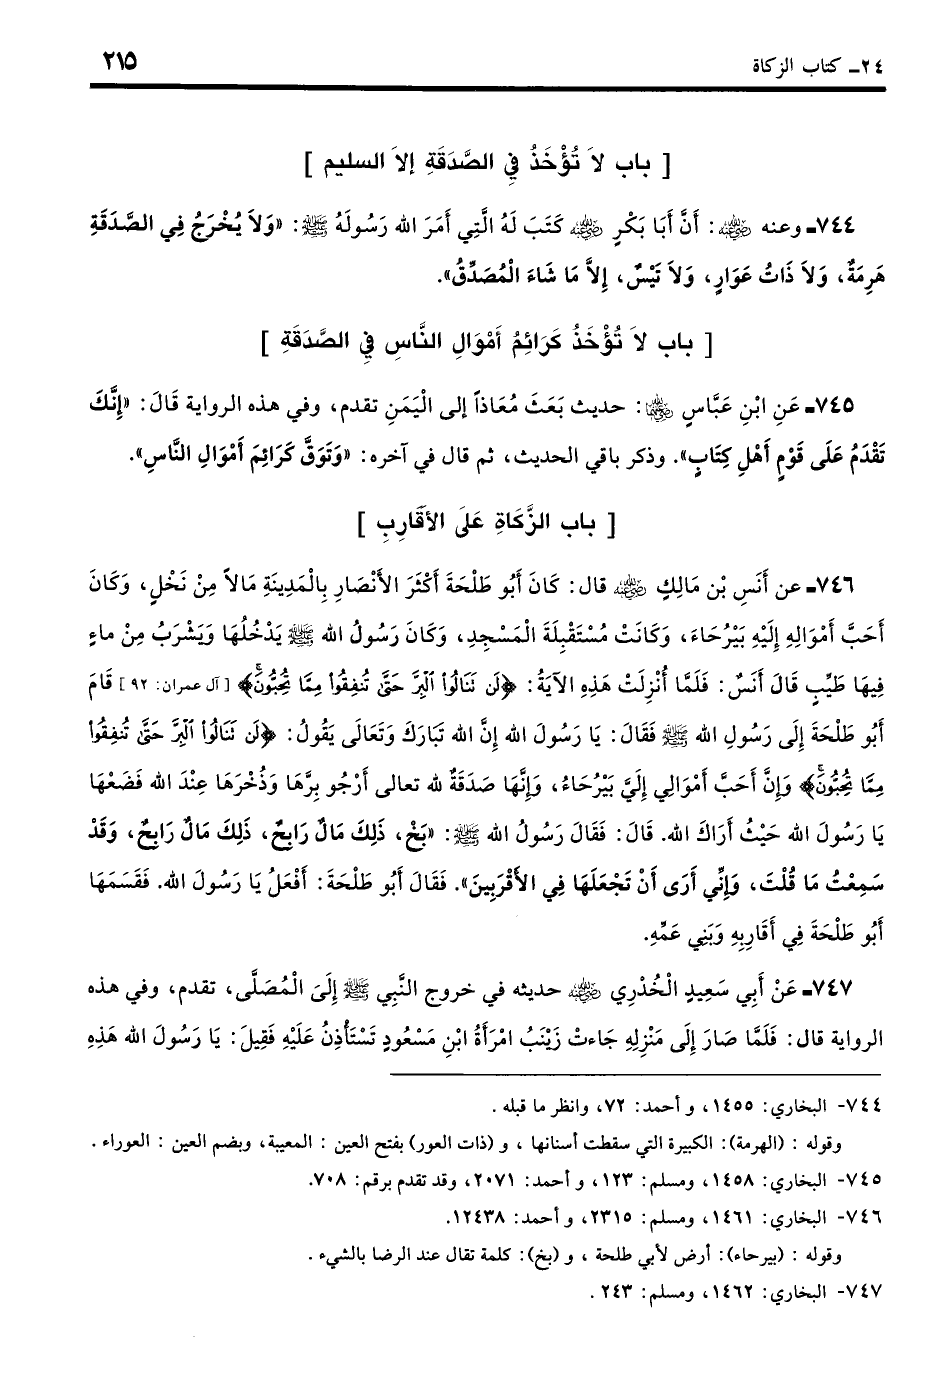 ٢٤ـ كتاب الزكاة ٢١٥
[ باب لاَ تُؤْخَذُ فِي الصَّدَقَةِ إلاَ السليم ]
٧٤٤ـ وعنه ﷺ: أَنَّ أَبَا بَكْرٍ ﷺ كَتَبَ لَهُ الَّتِي أَمَرَ الله رَسُولَهُ ﷺ: «وَلاَ يُخْرَجُ فِي الصَّدَقَةِ
هَرِمَةٌ، وَلاَ ذَاتُ عَوَارٍ، وَلاَ تَيْسٌ، إِلاَّ مَا شَاءَ الْمُصَدِّقُ».
[ باب لاَ تُؤْخَذُ كَرَائِمُ أَمْوَالِ النَّاسِ فِي الصَّدَقَةِ ]
٧٤٥ـ عَنِ ابْنِ عَبَّاسٍ ﷺ: حديث بَعَثَ مُعَاذاً إلى الْيَمَنِ تقدم، وفي هذه الرواية قَالَ: «إِنَّكَ
تَقْدَمُ عَلَى قَوْمٍ أَهْلِ كِتَابٍ». وذكر باقي الحديث، ثم قال في آخره: «وَتَوَقَّ كَرَائِمَ أَمْوَالِ النَّاسِ».
[ باب الزَّكَاةِ عَلَى الأَقَارِبِ ]
٧٤٦ـ عن أَنَسِ بْن مَالِكٍ ﷺ قال: كَانَ أَبُو طَلْحَةَ أَكْثَرَ الأَنْصَارِ بِالْمَدِينَةِ مَالاً مِنْ نَخْلٍ، وَكَانَ
أَحَبَّ أَمْوَالِهِ إِلَيْهِ بَيْرُحَاءَ، وَكَانَتْ مُسْتَقْبِلَةَ الْمَسْجِدِ، وَكَانَ رَسُولُ الله ﷺ يَدْخُلُهَا وَيَشْرَبُ مِنْ ماءٍ
فِيهَا طَيِّبٍ قَالَ أَنَسٌ: فَلَمَّا أُنْزِلَتْ هَذِهِ الآيَةُ: ﴿لَن نَنَالُوا۟ ٱلْبِرَّ حَتَّىٰ تُنفِقُوا۟ مِمَّا تُحِبُّونَۚ﴾ [آل عمران: ٩٢] قَامَ
أَبُو طَلْحَةَ إِلَى رَسُولِ الله ﷺ فَقَالَ: يا رَسُولَ الله إِنَّ الله تَبَارَكَ وَتَعَالَى يَقُولُ: ﴿لَن نَنَالُوا۟ ٱلْبِرَّ حَتَّىٰ تُنفِقُوا۟
مِمَّا تُحِبُّونَۚ﴾ وَإِنَّ أَحَبَّ أَمْوَالِي إِلَيَّ بَيْرُحَاءُ، وَإِنَّهَا صَدَقَةٌ لله تعالى أَرْجُو بِرَّهَا وَذُخْرَهَا عِنْدَ الله فَضَعْهَا
يَا رَسُولَ الله حَيْثُ أَرَاكَ الله. قَالَ: فَقَالَ رَسُولُ الله ﷺ: «بَخْ، ذَلِكَ مَالٌ رَابِحٌ، ذَلِكَ مَالٌ رَابِحٌ، وَقَدْ
سَمِعْتُ مَا قُلْتَ، وَإِنِّي أَرَى أَنْ تَجْعَلَهَا فِي الأَقْرَبِينَ». فَقَالَ أَبُو طَلْحَةَ: أَفْعَلُ يَا رَسُولَ الله. فَقَسَمَهَا
أَبُو طَلْحَةَ فِي أَقَارِبِهِ وَبَنِي عَمِّهِ.
٧٤٧ـ عَنْ أَبِي سَعِيدٍ الْخُدْرِي ﷺ حديثه في خروج النَّبِي ﷺ إِلَىَ الْمُصَلَّى، تقدم، وفي هذه
الرواية قال: فَلَمَّا صَارَ إِلَى مَنْزِلِهِ جَاءتْ زَيْنَبُ امْرَأَةُ ابْنِ مَسْعُودٍ تَسْتَأْذِنُ عَلَيْهِ فَقِيلَ: يا رَسُولَ الله هَذِهِ
٧٤٤- البخاري: ١٤٥٥، و أحمد: ٧٢، وانظر ما قبله .
وقوله : (الهرمة): الكبيرة التي سقطت أسنانها ، و (ذات العور) بفتح العين : المعيبة، وبضم العين : العوراء .
٧٤٥- البخاري: ١٤٥٨، ومسلم: ١٢٣، و أحمد: ٢٠٧١، وقد تقدم برقم: ٧٠٨.
٧٤٦- البخاري: ١٤٦١، ومسلم: ٢٣١٥، و أحمد: ١٢٤٣٨.
وقوله : (بيرحاء): أرض لأبي طلحة ، و (بخ): كلمة تقال عند الرضا بالشيء .
٧٤٧- البخاري: ١٤٦٢، ومسلم: ٢٤٣ .